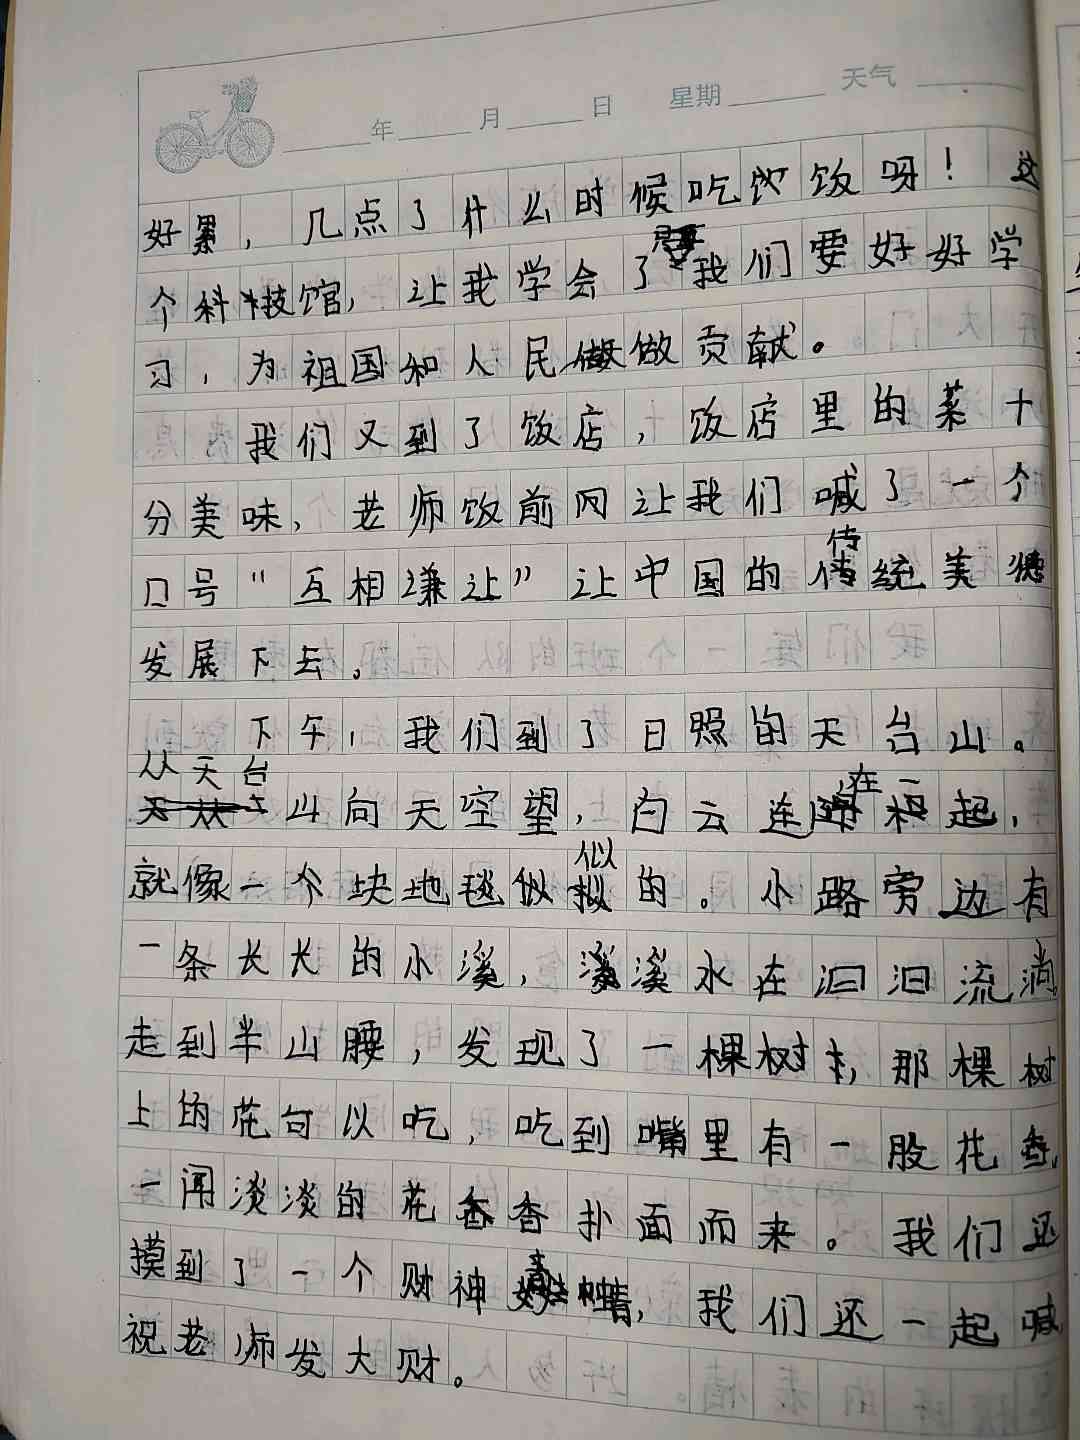 年 月 日 星期 天气
好累，几点了什么时候吃饭呀！这
个科技馆，让我学会了我们要好好学
习，为祖国和人民做贡献。
我们又到了饭店，饭店里的菜十
分美味，老师饭前网让我们喊了一个
口号“互相谦让”让中国的传统美德
发展下去。
下午，我们到了日照的天台山。
从天台山向天空望，白云连在一起，
就像一个块地毯似的。小路旁边有
一条长长的小溪，溪水在汩汩流淌。
走到半山腰，发现了一棵树，那棵树
上的花可以吃，吃到嘴里有一股花香，
一闻淡淡的花香扑面而来。我们还
摸到了一个财神，我们还一起喊
祝老师发大财。